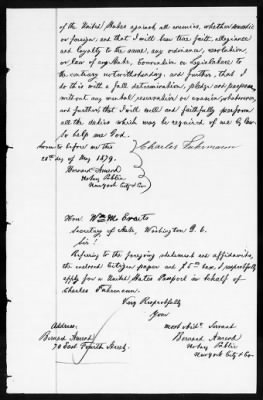 of the United States against all enemies, whether domestic
or foreign, and that I will bear true faith, allegiance
and loyalty to the same, any ordinance, resolution
or law of any State, Convention or Legislature to
the contrary notwithstanding, and further, that I
do this with a full determination, pledge and purpose
without any mental reservation or evasion whatsoever,
and further that I will well and faithfully perform
all the duties which may be required of me by law
So help me God.
Sworn to before me this
20th day of May 1879.
Charles Fuhrmann
Bernard Amend
Notary Public
New York City & Co
Hon. Wm M Evarts
Secretary of State, Washington D. C.
Sir!
Referring to the foregoing statement and affidavits,
the enclosed Citizen paper and $5 00 tax, I respectfully
apply for a United States Passport in behalf of
Charles Fuhrmann.
Very Respectfully
Your
Address:
most obdt Servant
Bernard Amend
Bernard Amend
70 East Fourth Street,
Notary Public
New York City & Co